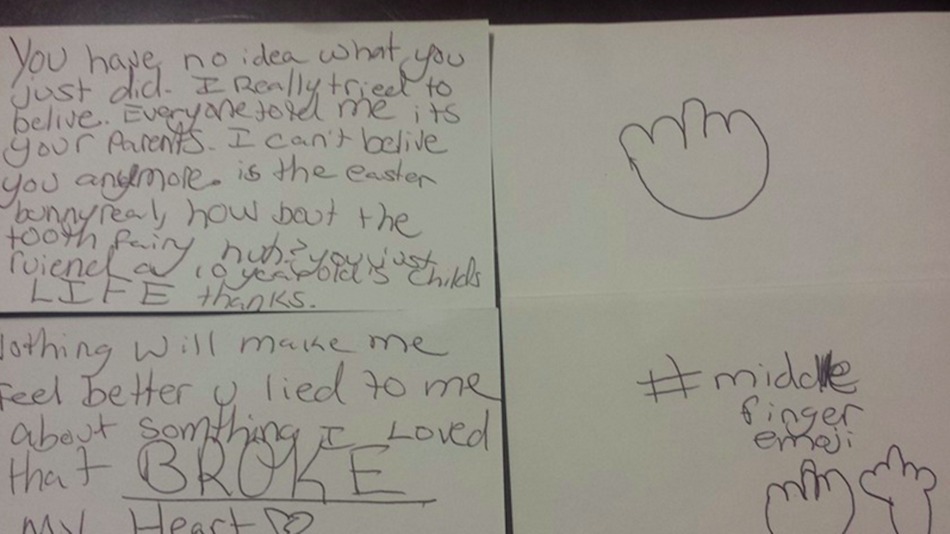 You have no idea what you
just did. I Really tried to
belive. Everyone told me its
your Parents. I can't belive
you anymore. is the easter
bunny real, how bout the
tooth fairy huh? you just
ruiend a 10 year old's childs
LIFE thanks.
Nothing will make me
Feel better u lied to me
about somthing I Loved
that BROKE
My Heart
#middle
finger
emoji